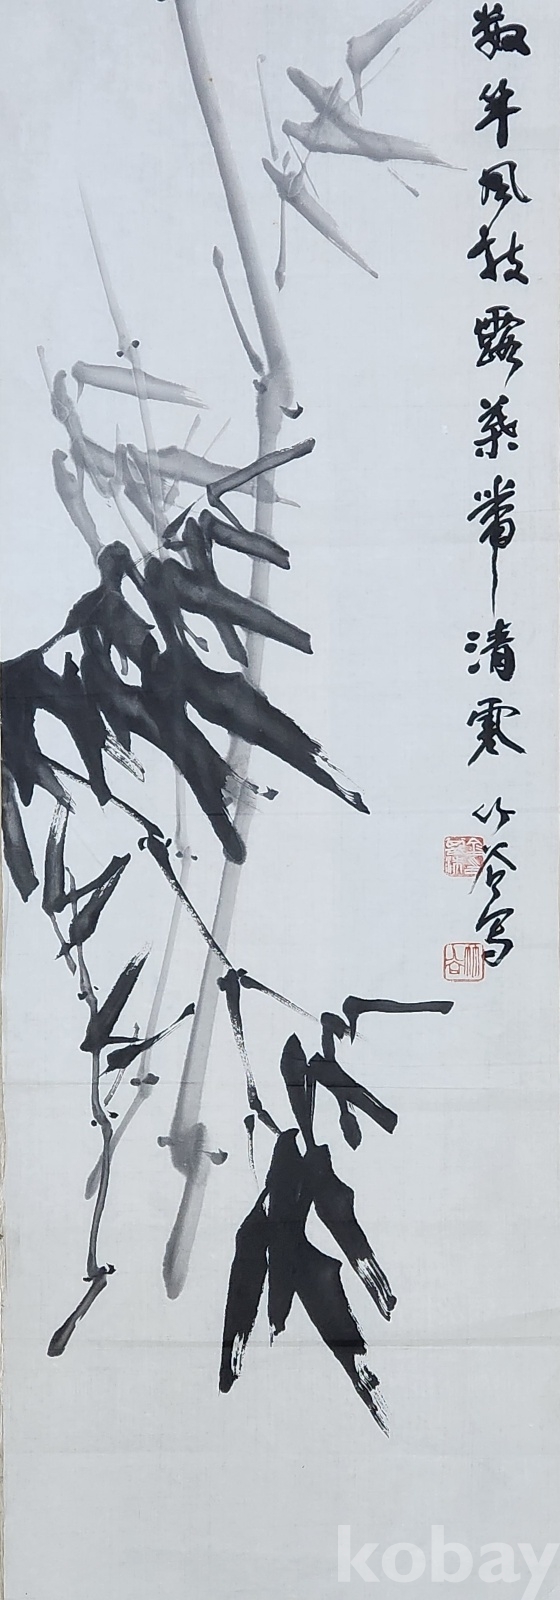 數竿風枝露葉帶清寒 竹谷寫
竹谷
kobay